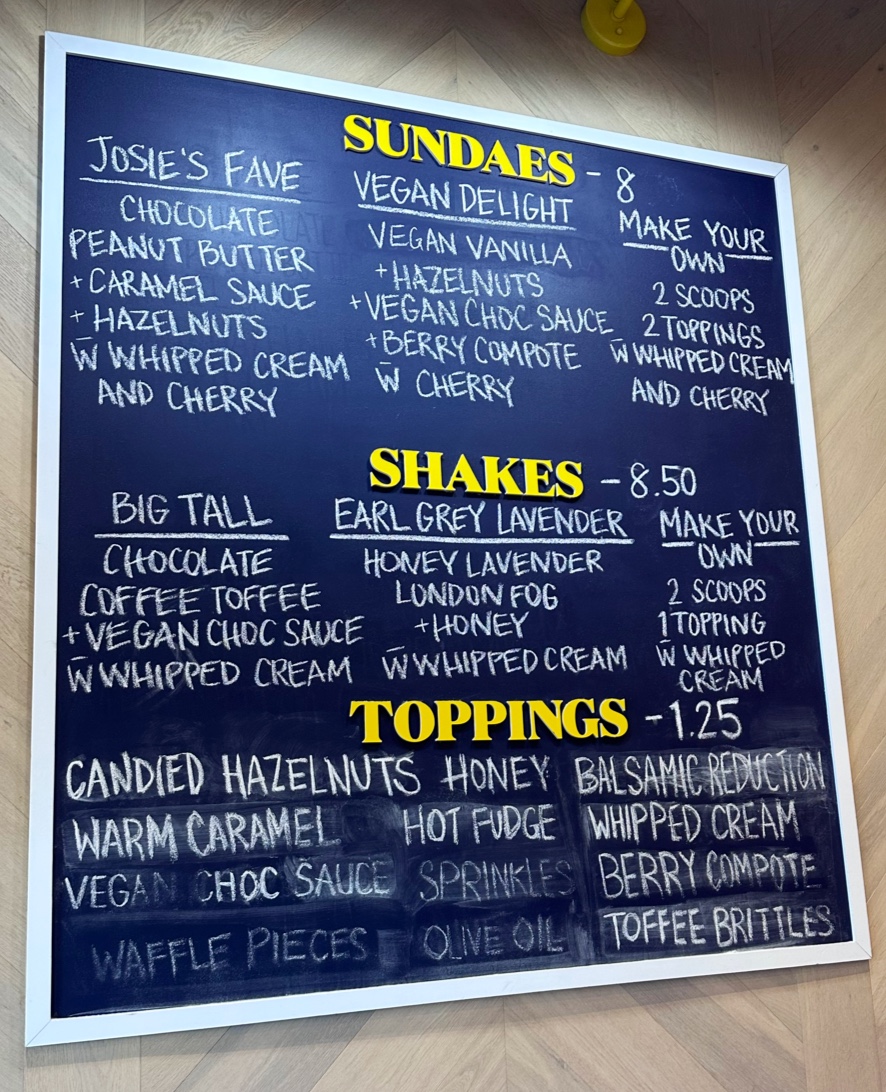 SUNDAES - 8
JOSIE'S FAVE
CHOCOLATE
PEANUT BUTTER
+ CARAMEL SAUCE
+ HAZELNUTS
W̄ WHIPPED CREAM
AND CHERRY
VEGAN DELIGHT
VEGAN VANILLA
+ HAZELNUTS
+ VEGAN CHOC SAUCE
+ BERRY COMPOTE
W̄ CHERRY
MAKE YOUR
OWN
2 SCOOPS
2 TOPPINGS
W̄ WHIPPED CREAM
AND CHERRY
SHAKES - 8.50
BIG TALL
CHOCOLATE
COFFEE TOFFEE
+ VEGAN CHOC SAUCE
W̄ WHIPPED CREAM
EARL GREY LAVENDER
HONEY LAVENDER
LONDON FOG
+ HONEY
W̄ WHIPPED CREAM
MAKE YOUR
OWN
2 SCOOPS
1 TOPPING
W̄ WHIPPED
CREAM
TOPPINGS - 1.25
CANDIED HAZELNUTS HONEY BALSAMIC REDUCTION
WARM CARAMEL HOT FUDGE WHIPPED CREAM
VEGAN CHOC SAUCE SPRINKLES BERRY COMPOTE
WAFFLE PIECES OLIVE OIL TOFFEE BRITTLES